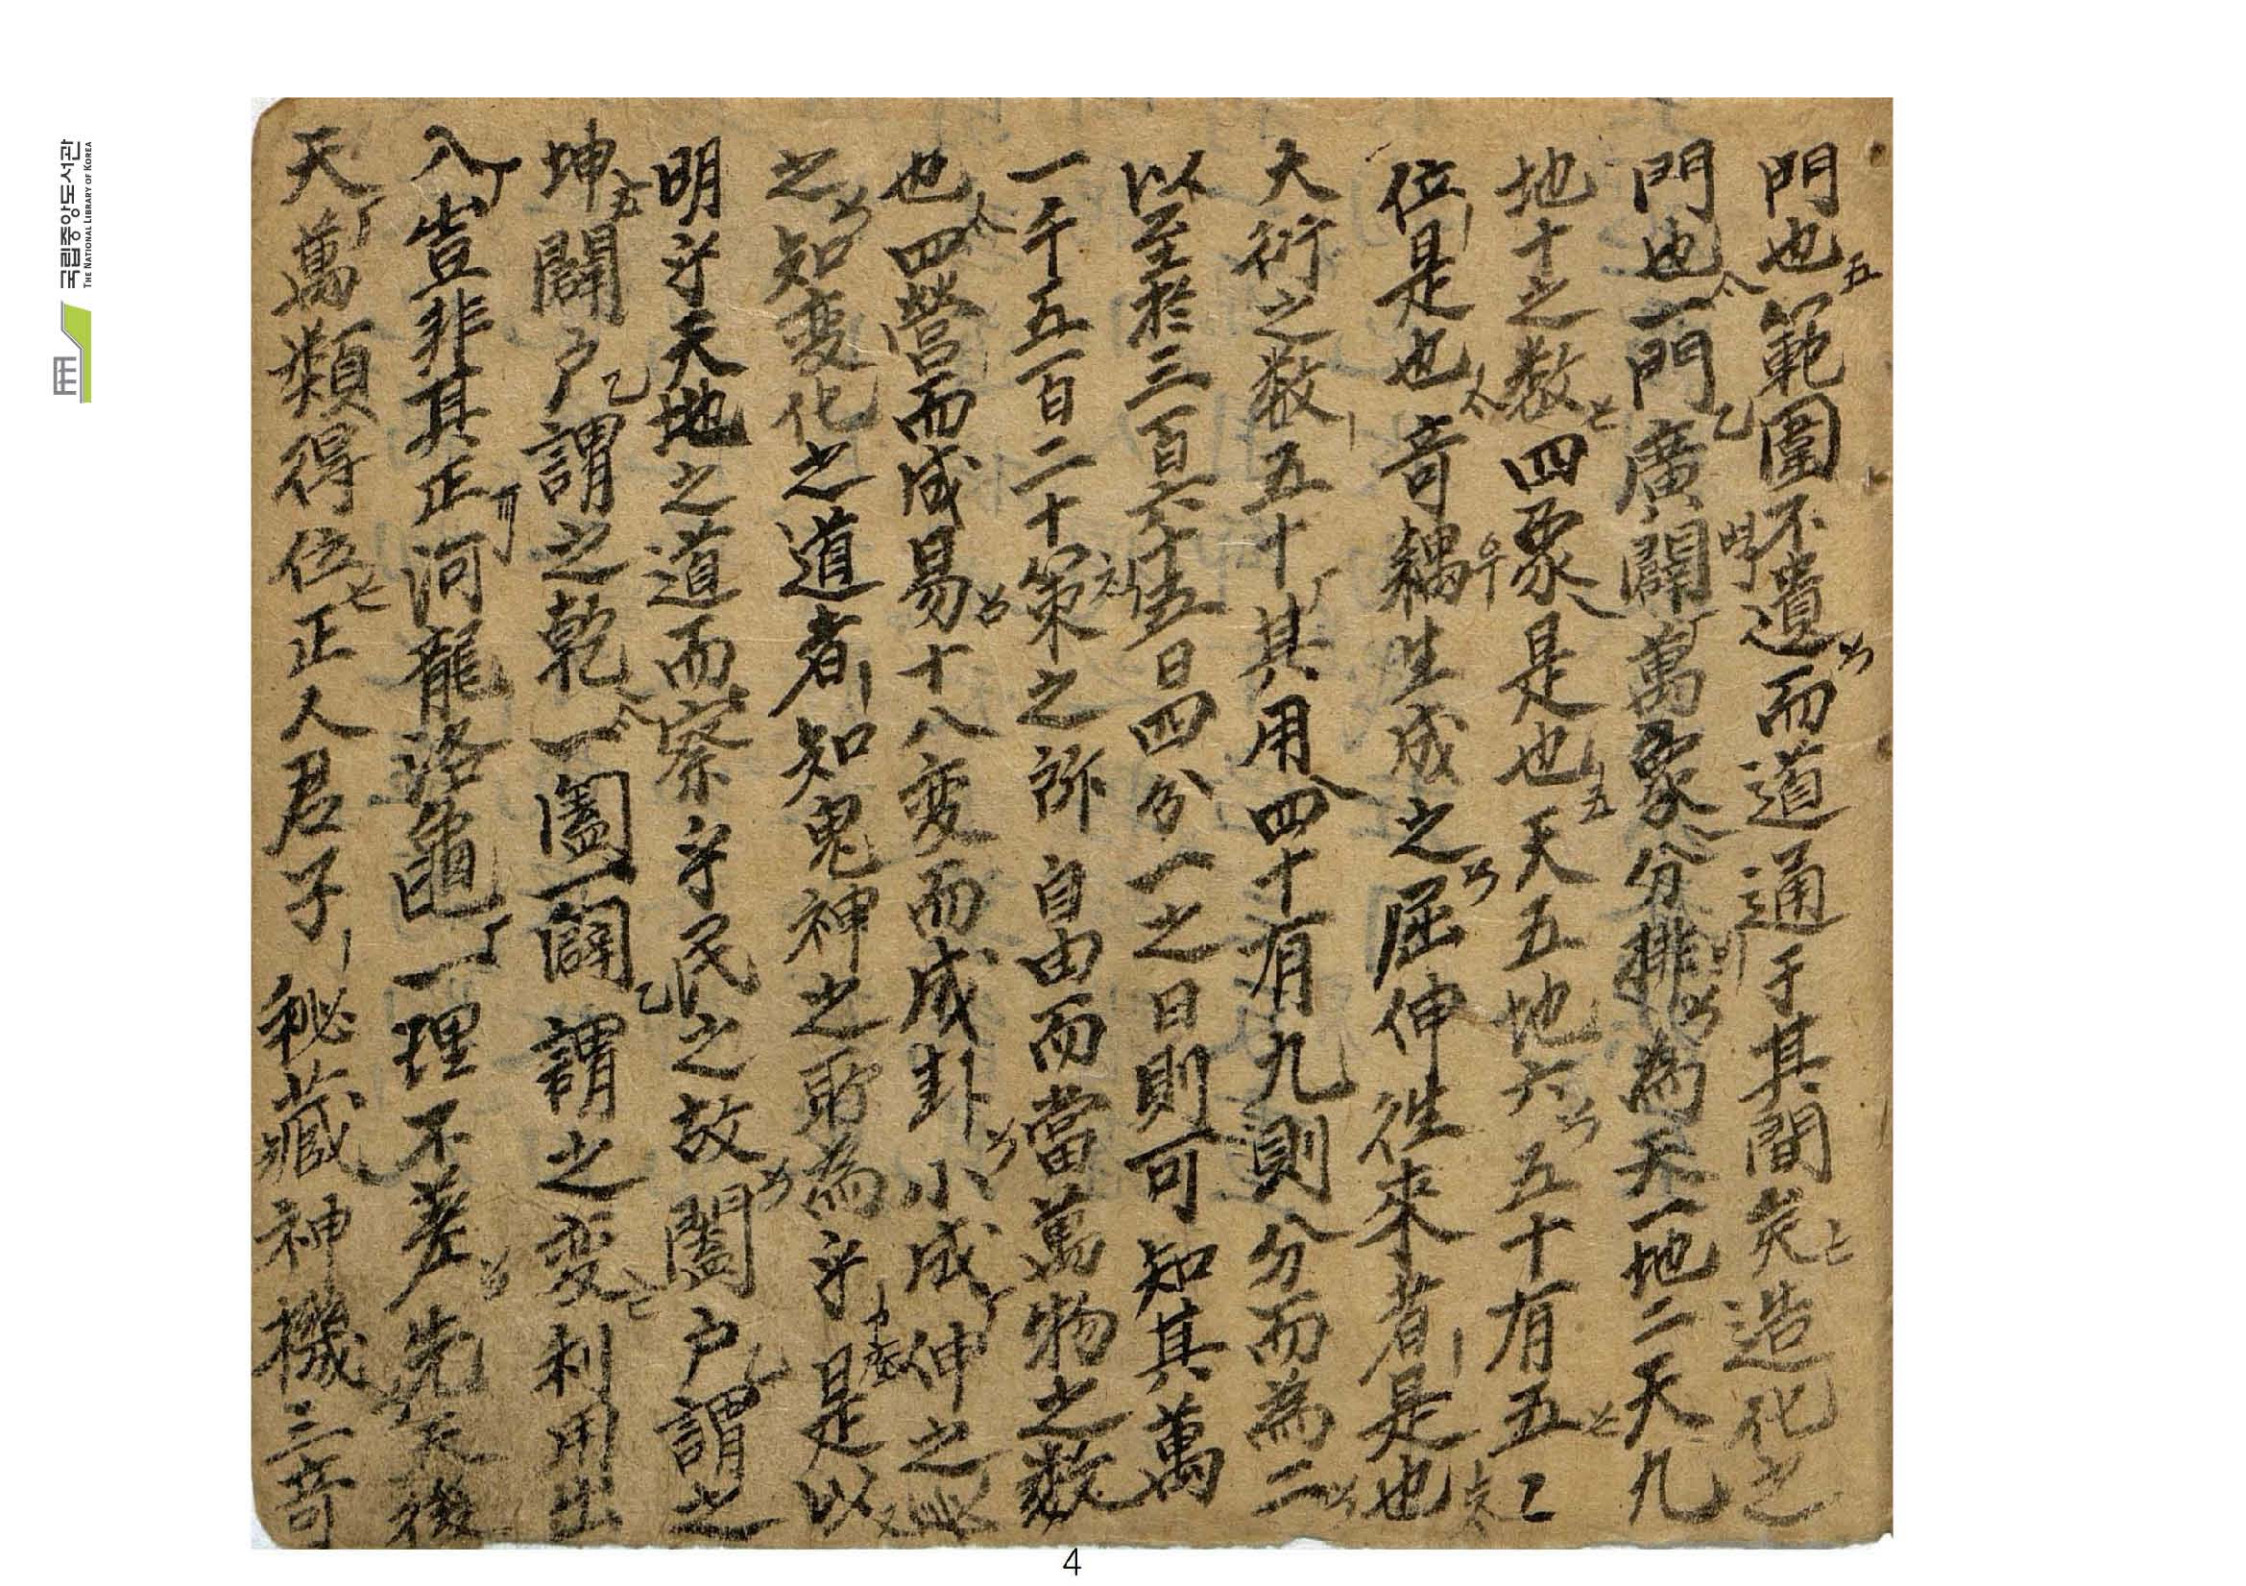 門也五範圍不遺ソ而道通于其間矣造化之
門也一門乙廣闢萬象分排ソ為天一地二天九
地十之数四象是也五天五地六ソ五十有五
位是也奇耦生成之ソ屈伸徃來者是也
大衍之数五十其用四十有九則分而為二
以至於三百六十五日四分一之日則可知其萬
一千五百二十策之 自由而當萬物之数
也四營而成易ソ十八変而成卦ソ小成伸之
之ソ知変化之道者知鬼神之所為乎是以
明乎天地之道而察乎民之故ソ闔户乙謂之
坤闢户乙謂之乾一闔一闢乙謂之変利用出
入豈非其正河龍洛龜一理不差ソ先天後
天萬類得位正人君子秘藏神機三奇
국립중앙도서관
THE NATIONAL LIBRARY OF KOREA
4